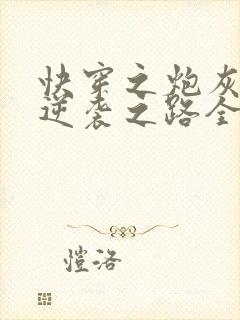 快穿之炮灰
逆袭之路全
恺洛